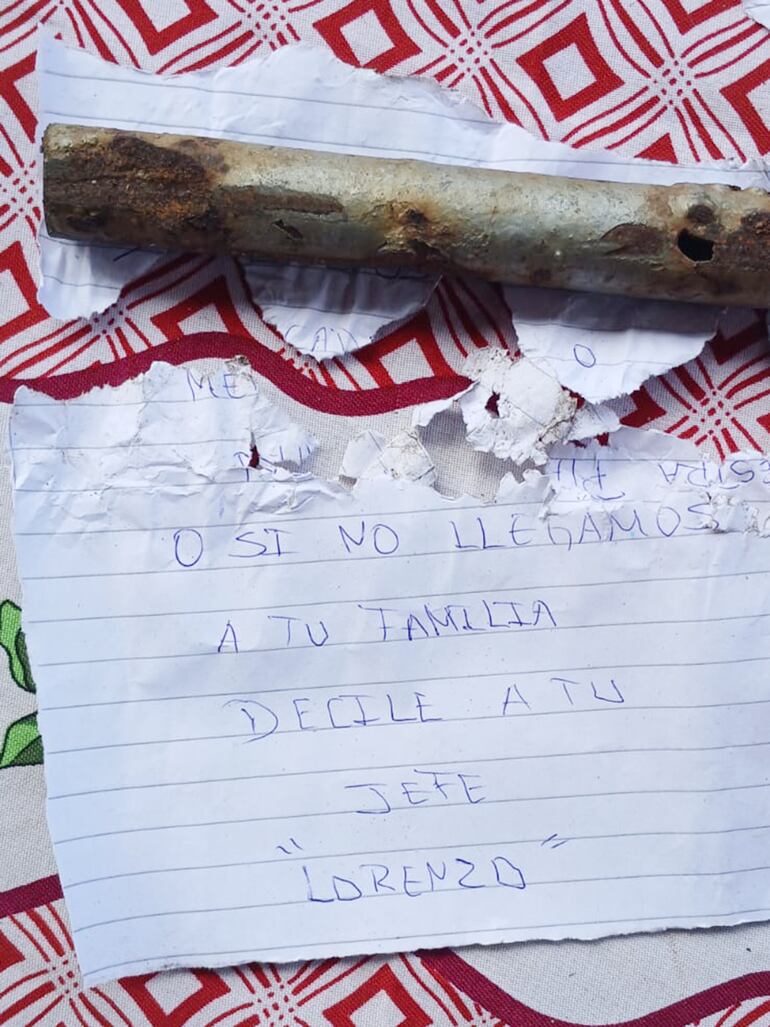 CAD
O
ME
O SI NO LLEGAMOS
A TU FAMILIA
DECILE A TU
JEFE
"LORENZO"